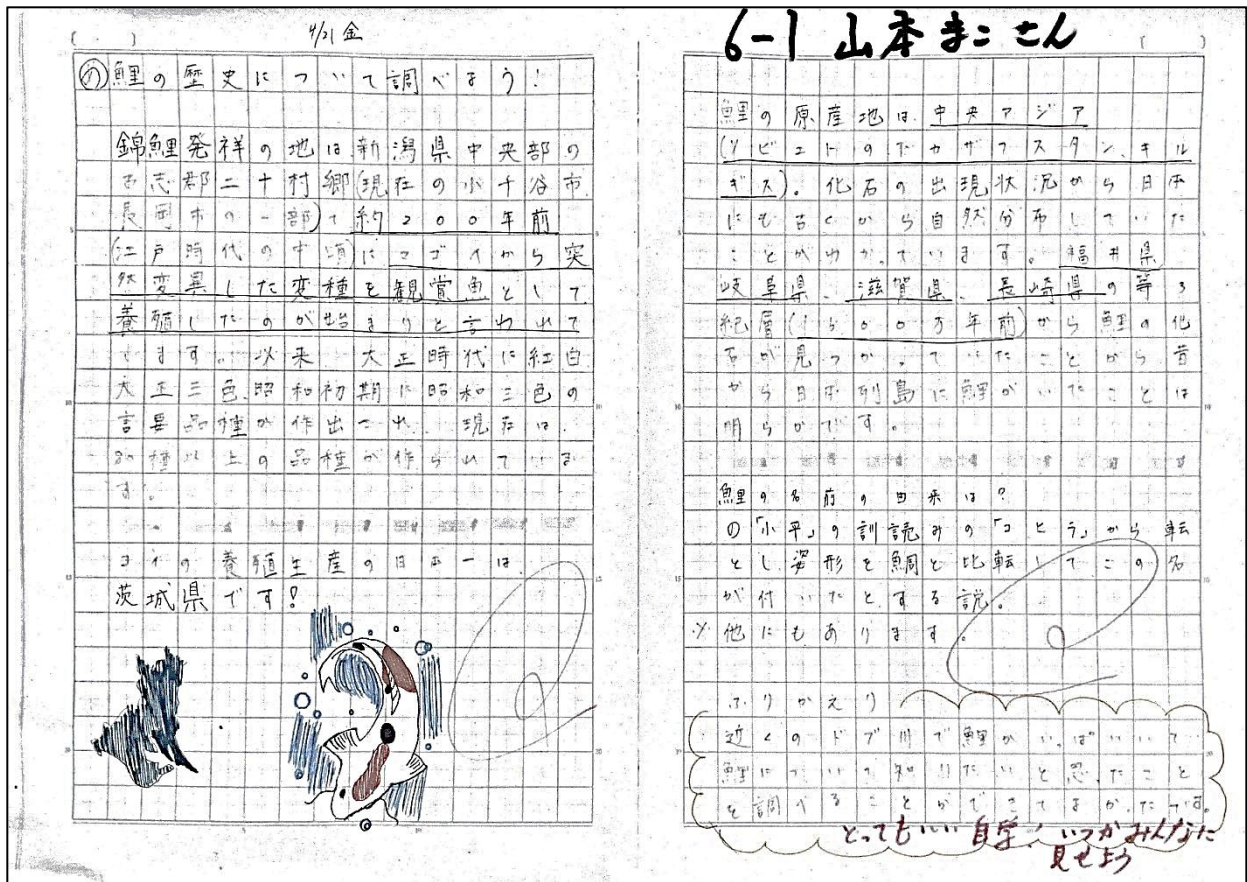 4/21 金
め 鯉の歴史について調べよう!
錦鯉発祥の地は、新潟県中央部の
古志郡二十村郷(現在の小千谷市、
長岡市の一部)で約200年前
(江戸時代の中頃)にマゴイから突
然変異した変種を観賞魚として
養殖したのが始まりと言われて
います。以来 大正時代に紅白
大正三色、昭和初期に昭和三色の
品種が作出され、現在は、
種以上の品種が作られていま
す。
コイの養殖生産の日本一は、
茨城県です!
6-1 山本まこさん
鯉の原産地は、中央アジア
(ソビエトのカザフスタン、キル
ギス)。化石の出現状況から日本
にも古くから自然分布していた
ことがわかっています。福井県
岐阜県、滋賀県、長崎県の第3
紀層(1500万年前)から鯉の化
石が見つかっていたことから昔
から日本列島に鯉がいたことは
明らかです。
鯉の名前の由来は?
の「小平」の訓読みの「コヒラ」から転
とし姿形を鯛と比転してこの名
が付いたとする説。
※他にもあります。
ふりかえり
近くのドブ川で鯉がいっぱいいて
鯉について知りたいと思ったこと
を調べることができてよかったです。
とってもいい自学! いつかみんなに
見せよう